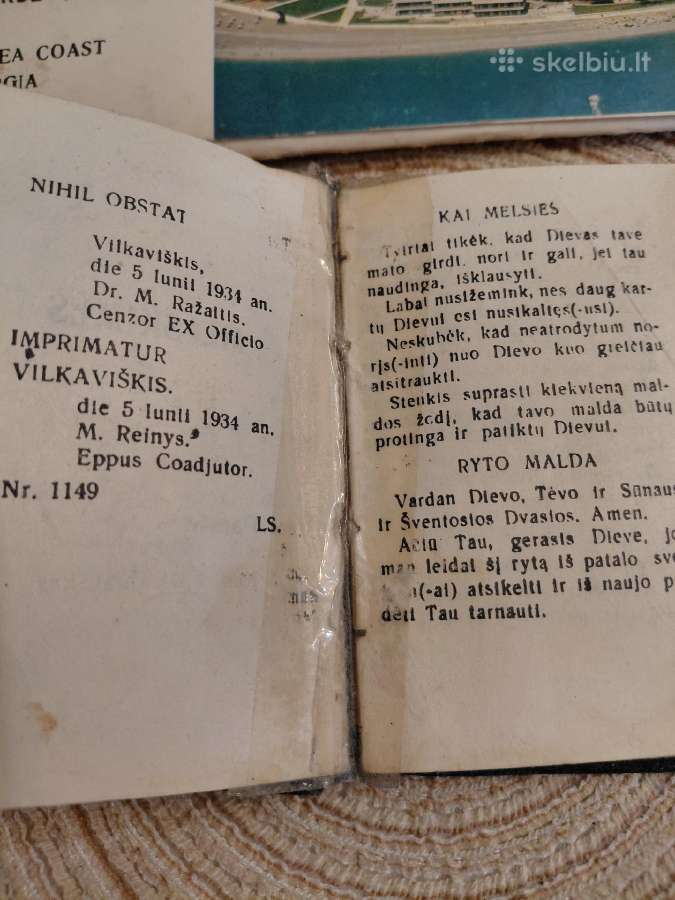 EA COAST
skelbiu.lt
NIHIL OBSTAT
Vilkaviškis,
die 5 Iunii 1934 an.
Dr. M. Ražaitis.
Cenzor EX Officio
IMPRIMATUR
VILKAVIŠKIS.
die 5 Iunii 1934 an.
M. Reinys.
Eppus Coadjutor.
Nr. 1149
LS.
KAI MELSIES
Tvirtai tikėk, kad Dievas tave
mato girdi, nori ir gali, jei tau
naudinga, išklausyti.
Labai nusižemink, nes daug kar-
tų Dievui esi nusikaltęs(-usi).
Neskubėk, kad neatrodytum no-
rįs(-inti) nuo Dievo kuo greičiau
atsitraukti.
Stenkis suprasti kiekvieną mal-
dos žodį, kad tavo malda būtų
protinga ir patiktų Dievui.
RYTO MALDA
Vardan Dievo, Tėvo ir Sūnaus
ir Šventosios Dvasios. Amen.
Ačiū Tau, gerasis Dieve, jo
man leidai šį rytą iš patalo sve
(-ai) atsikelti ir iš naujo p
dėti Tau tarnauti.